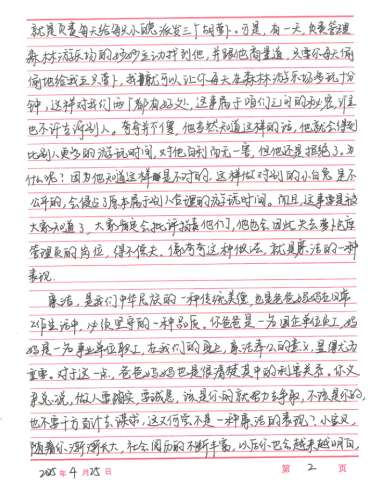 就是负责每天给每只小兔派发三个胡萝卜。可是，有一天，负责管理
森林游乐场的妙妙主动找到他，并跟他商量道，只要你每天偷
偷地给我五只萝卜，我就可以让你每天在森林游乐场多玩十分
钟，这样对我们两个都有好处，这事属于咱们之间的秘密，谁
也不许告诉别人。奇奇并不傻，他当然知道这样的话，他就会得到
比别人更多的游玩时间，对他百利而无一害，但他还是拒绝了，为
什么呢？因为他知道这样是不对的，这样做对别的小白兔是不
公平的，会侵占了原本属于别人合理的游玩时间。而且，这事要是被
大家知道了，大家肯定会批评指责他们，他也会因此失去萝卜仓库
管理员的岗位，得不偿失。像奇奇这种做法，就是廉洁的一种
表现。
廉洁，是我们中华民族的一种传统美德，也是爸爸妈妈在日常
工作生活中，必须坚守的一种品质。你爸爸是一名国企单位员工，妈
妈是一名事业单位职工，在我们的身上，廉洁奉公的意义，显得尤为
重要。对于这一点，爸爸妈妈也是很清楚其中的利害关系。你义
来说，做人要踏实，要诚恳，该是你的就努力去争取，不该是你的，
也不要千方百计去谋求，这又何尝不是一种廉洁的表现？小宝贝，
随着你渐渐长大，社会阅历的不断丰富，以后你也会越来越明白，
2025年4月25日 第2页